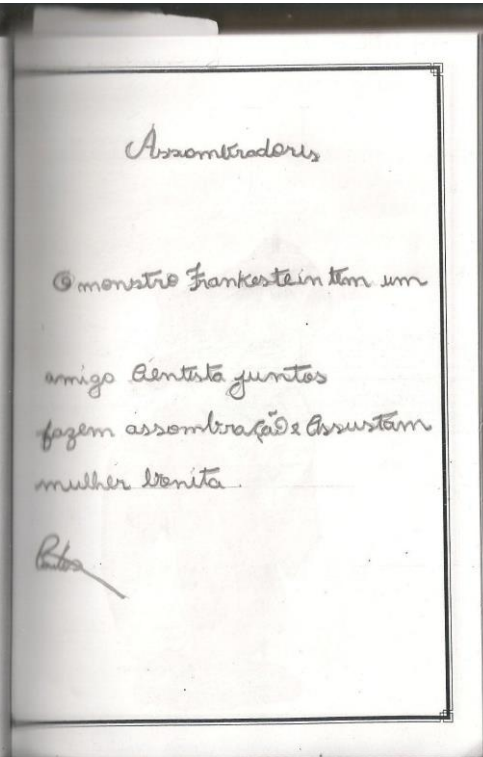 Assombradores
O monstro Frankestein tem um
amigo Cientista juntos
fazem assombração e Assustam
mulher bonita.